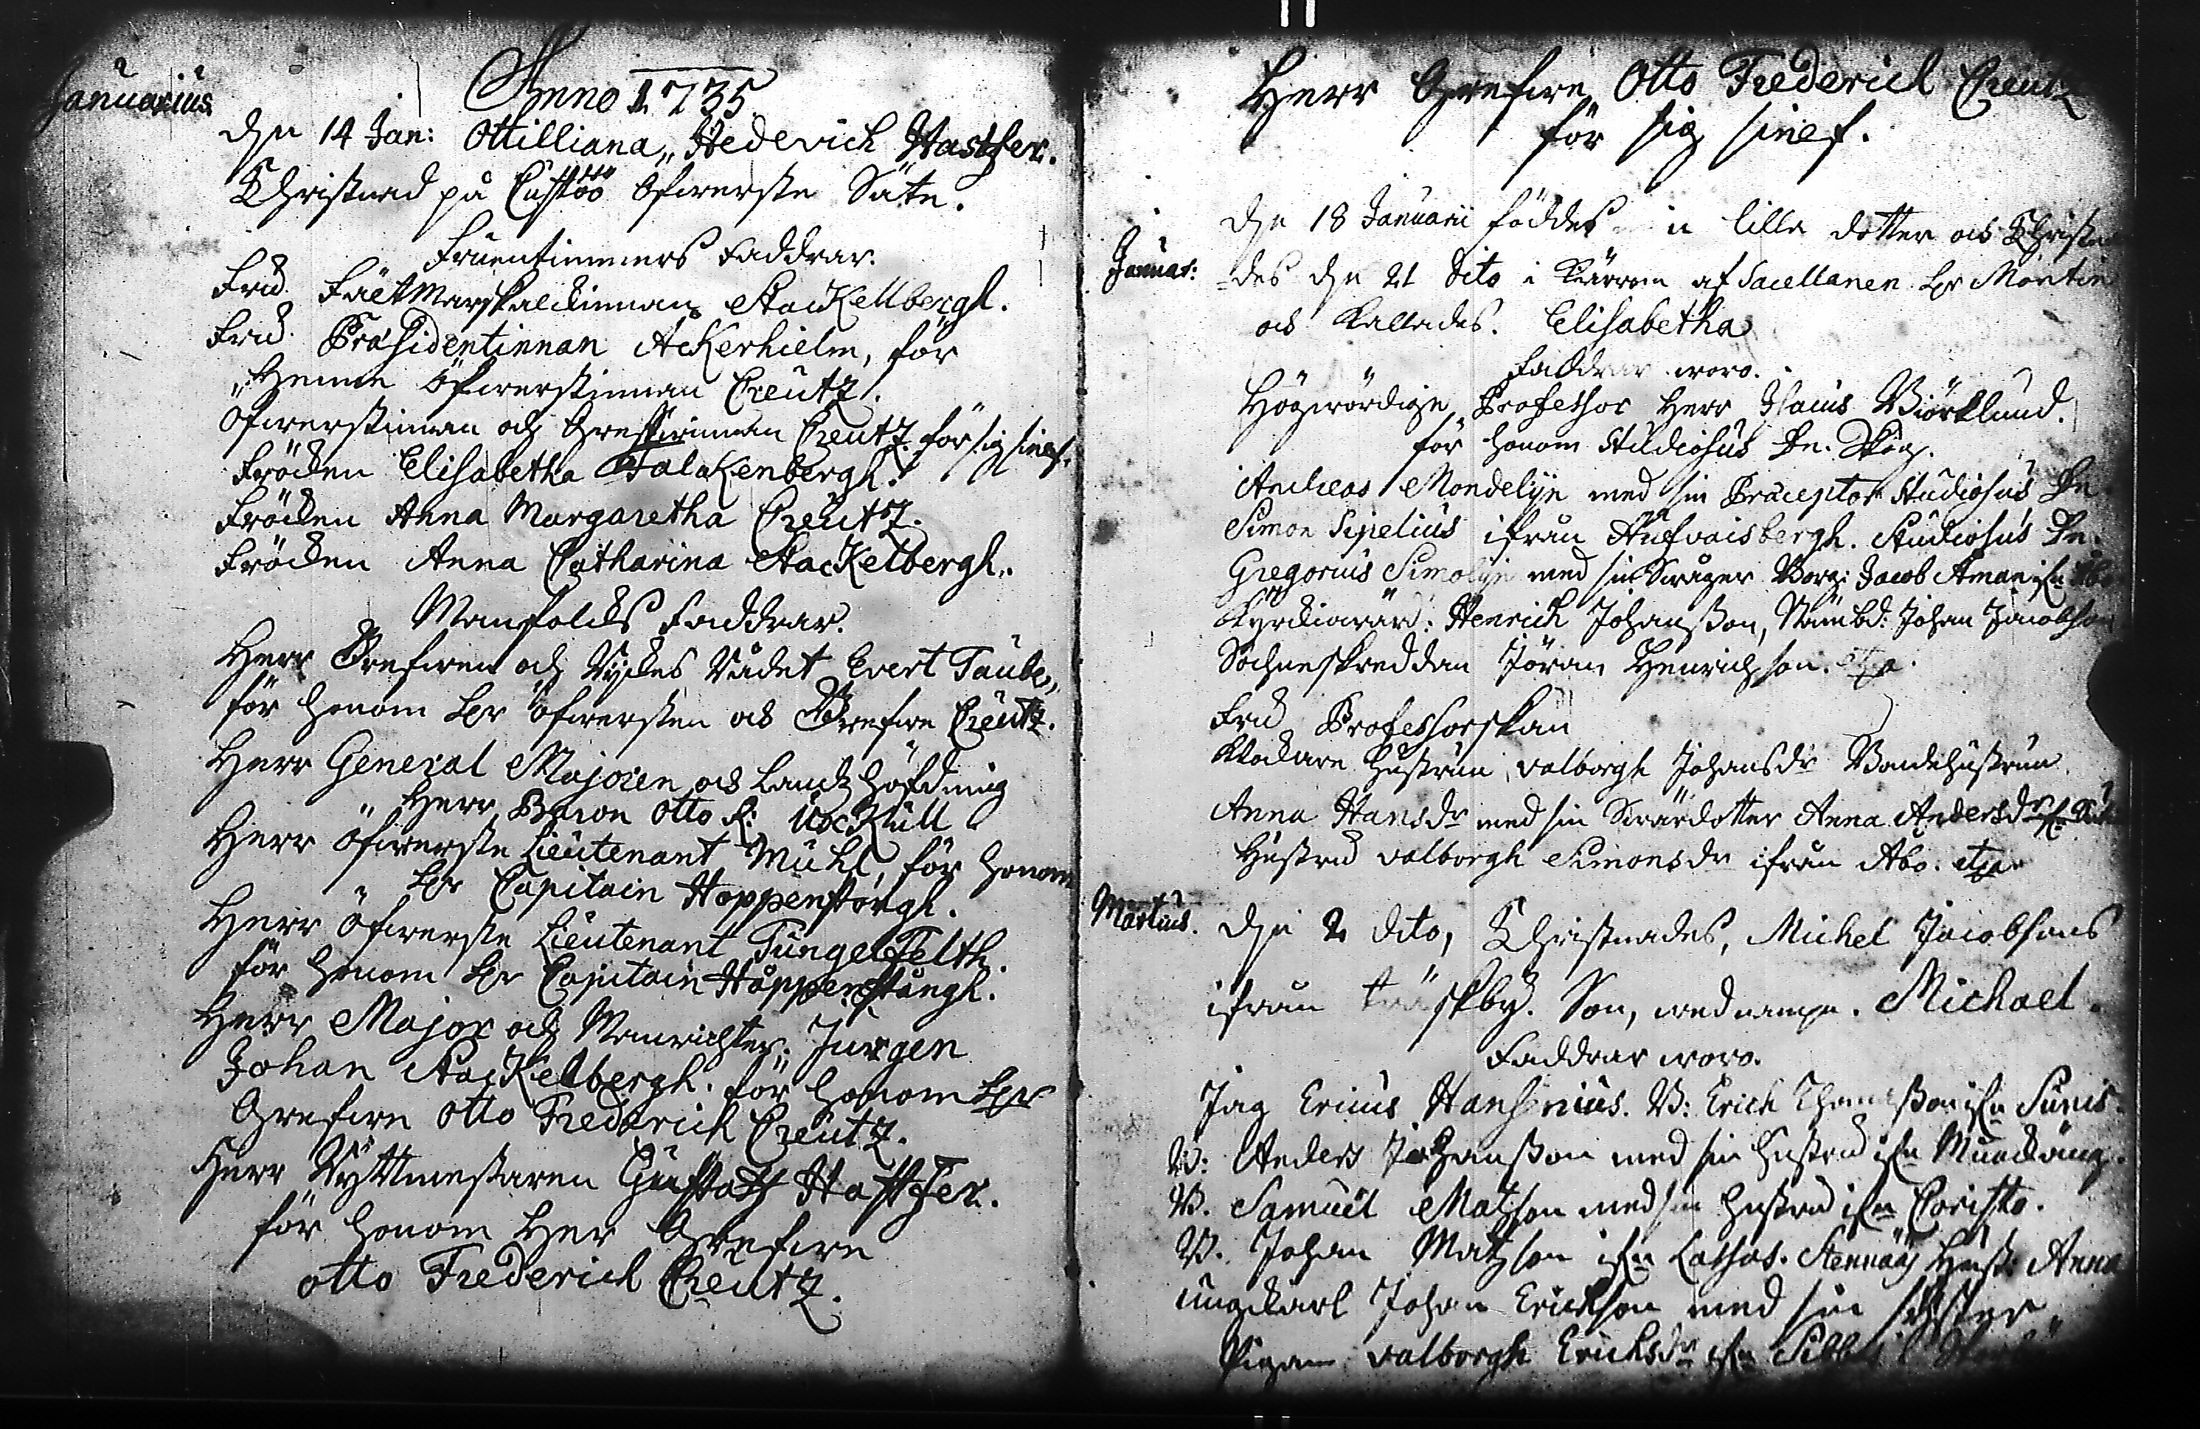 Januarius
Anno 1735
den 14 Jan: Ottilliana Hedevich Hastfer.
Christnad på Custöö Öfwerste Säte.
Fruentimmers Faddrar.
Fru Fältmarskalckinnan Stackellbergh.
Fru Præsidentinnan Ackerhielm, för
Henne Öfwerstinnan Creutz.
Öfwerstinnan och Grefwinnan Creutz för sig sielf.
Fröcken Elisabetha Falckenbergh.
Fröcken Anna Margaretha Creutz.
Fröcken Anna Catharina Stackelbergh.
Manfolcks Faddrar.
Herr Grefwen och Rickes Rådet Evert Taube,
för honom Hr Öfwersten och Grefwe Creutz.
Herr General Majoren och Landzhöfding
Herr Baron Otto R: Üxckull
Herr Öfwerste Lieutenant Mühl, för honom
Hr Capitain Hoppenstångh.
Herr Öfwerste Lieutenant Tungelfelth.
för honom Hr Capitain Hoppenstångh.
Herr Major och Manrichter Jurgen
Johan Stackelbergh. för honom Hr
Grefwe Otto Frederich Creutz.
Herr Ryttmestaren Gustaff Hastfer.
för honom Herr Grefwe
Otto Frederich Creutz.
Herr Grefwe Otto Frederich Creutz
för sig sielf.
Januar:
den 18 Januarii föddes en lille dotter och Christna
des den 21 dito i af Sacellanen Hr Montin
och Kallades. Elisabetha
Faddrar woro.
Högwördige Professor Herr Isacus Biörklund.
för honom Studiosus Dn.
Andreas Mondelijn med sin Præceptor Studiosus Dn.
Simon Sipelius ifrån. Studiosus Dn.
Gregorius Simolijn med sin Swåger Borg: Jacob Aman
Kyrckiowärd: Henrich Johansson, Nämbd: Johan Jacobson
Sochneskreddan Jöran Henrichson.
Fru Professorskan
Klockare Hustrun, Valborgh Johansdr Bondehustrun
Anna Hansdr med sin Swärdotter Anna Andersdr
Hustru Valborgh Simonsdr ifrån Åbo.
Martius.
den 2 dito, Christnades, Michel Jacobsons
ifrån Träskby. Son, wed namn. Michael.
Faddrar woro.
Jag Ericus Hansenius. B: Erich ifr: Sunis.
B: Anders Johansson med sin hustru ifr:
B. Samuel Matson med sin hustru ifr: Coristo.
B. Johan Matzson ifr: Hust: Anna
ungkarl Johan Erickson med sin Syster
Pigan Valborgh Ericksdr ifr: